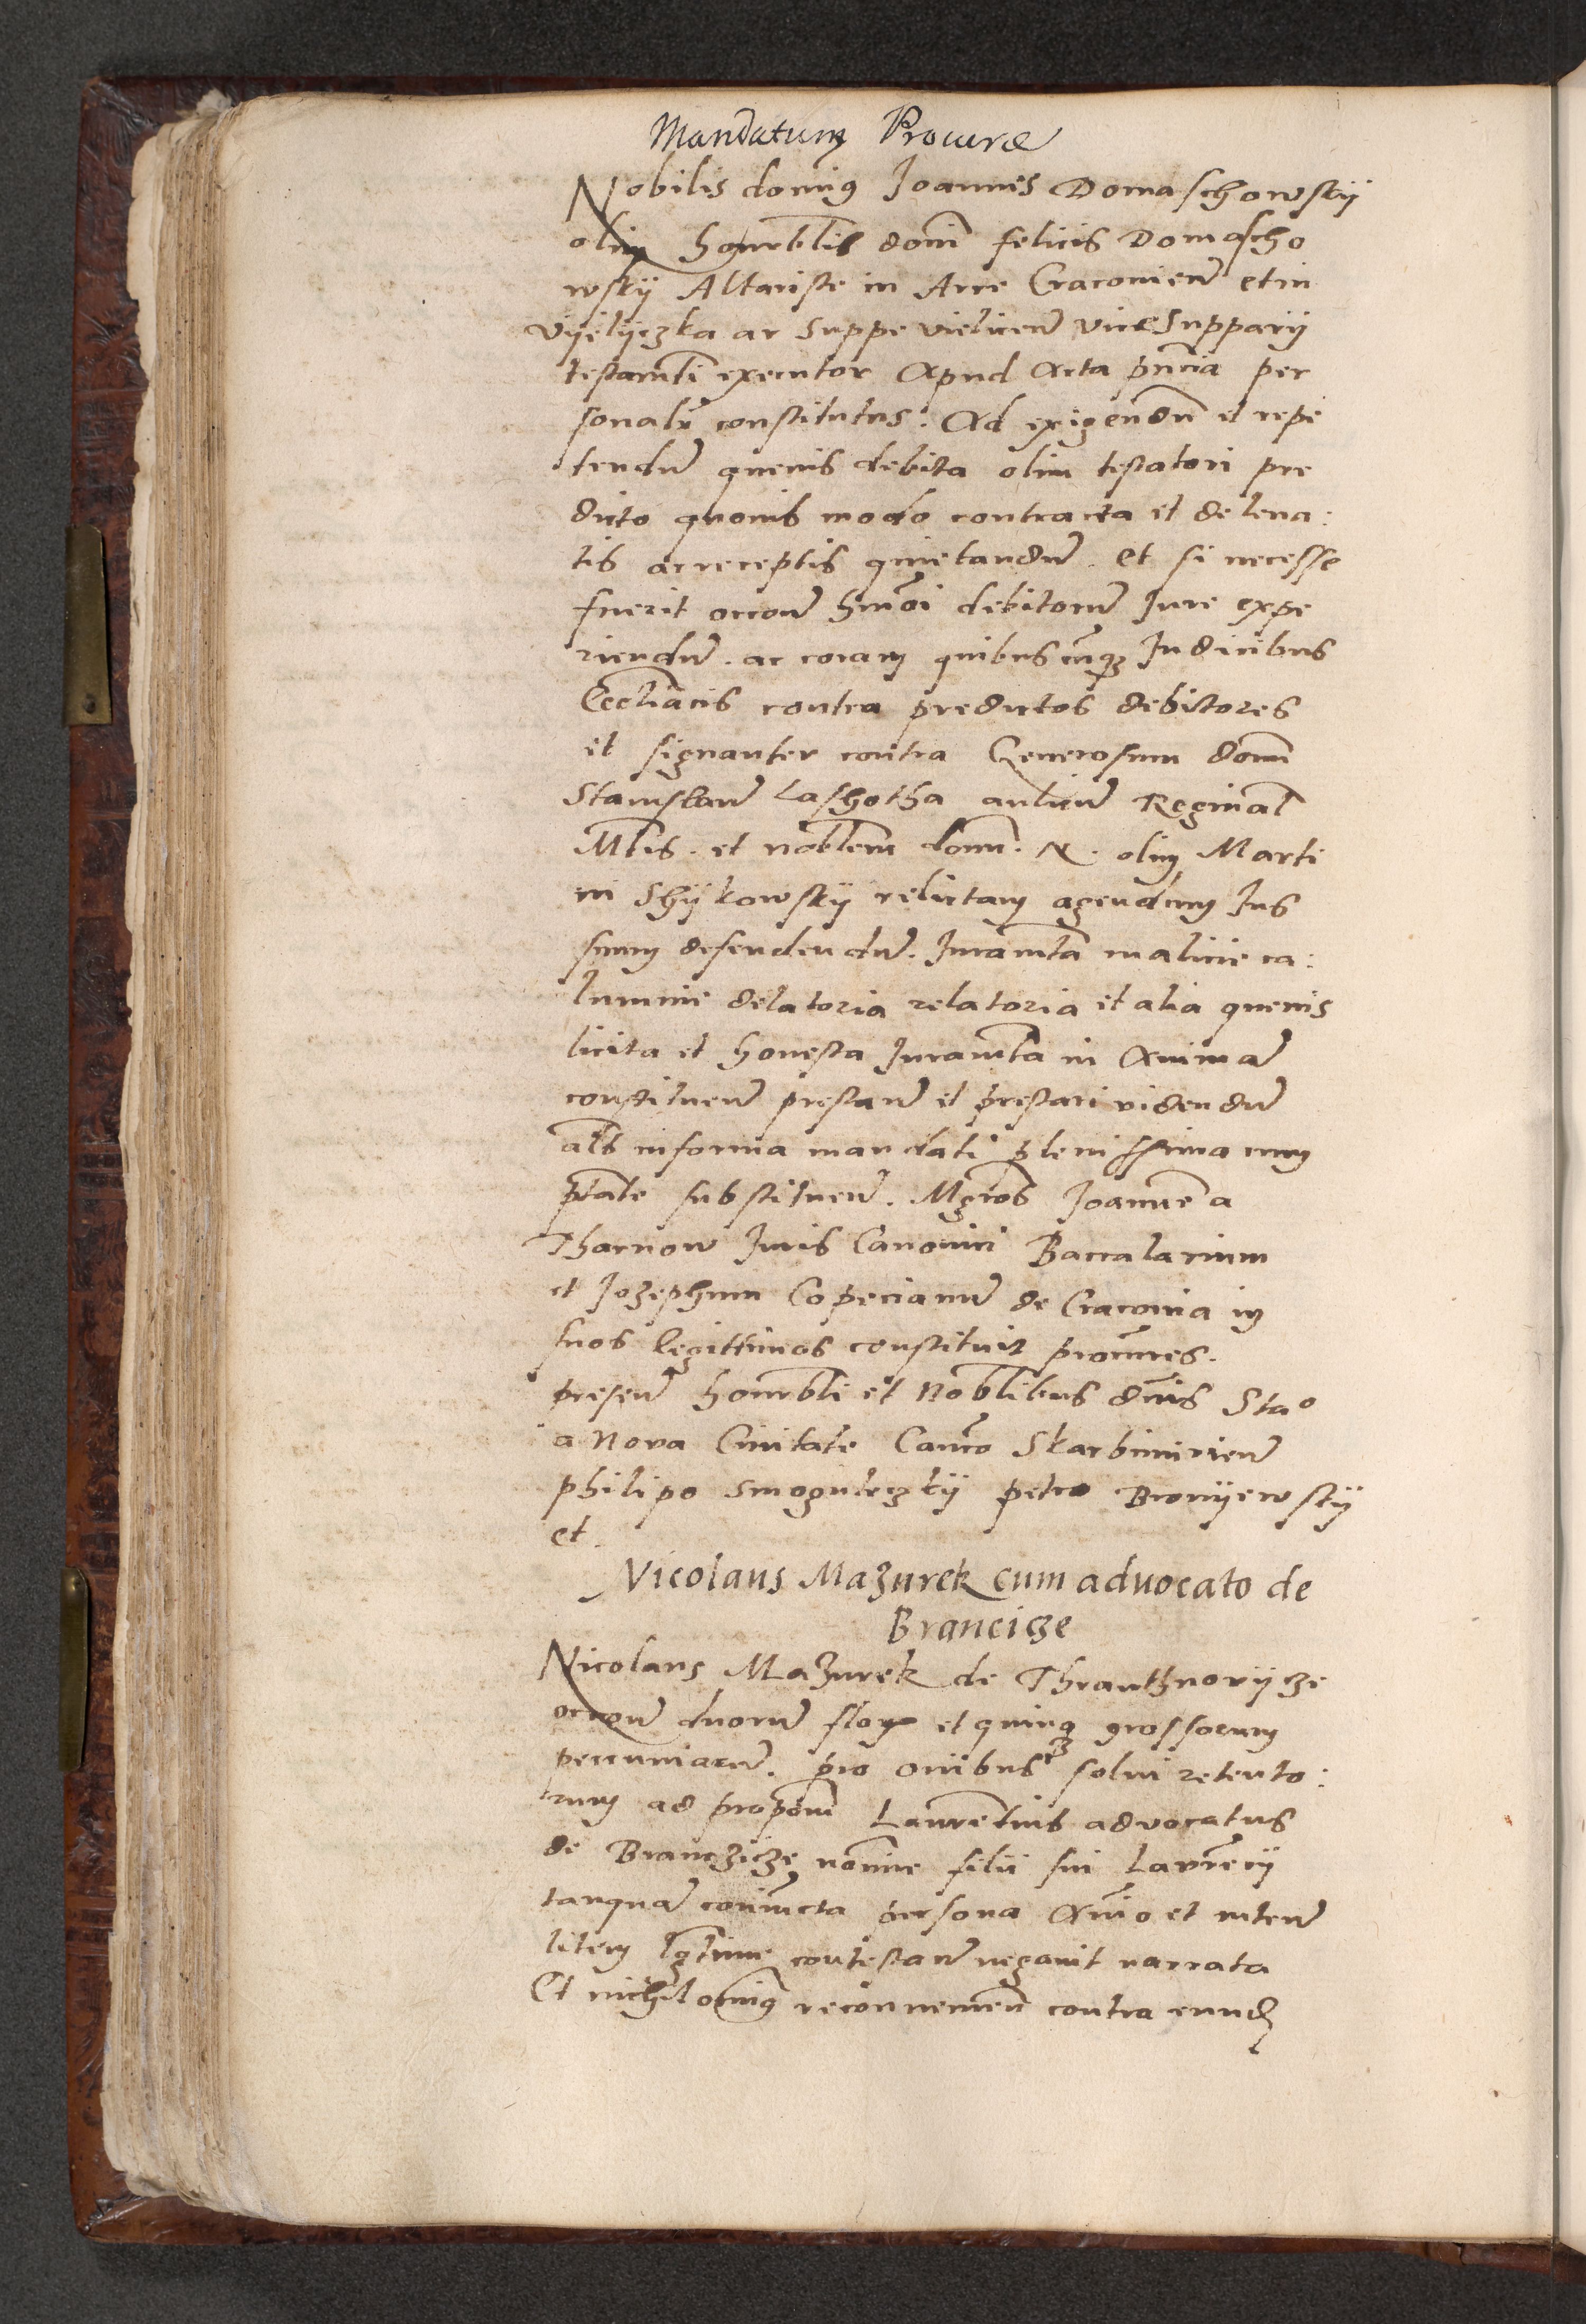 Mandatum Procure
Nobilis domin9 Joannes Domaschowskij
olim honrblis domi felicis Domascho
wskij Altariste in Arce Cracovien et in
Vijelijczka ac suppe vielicen vicesupparij
testamti executor Apud Acta pncia per
sonalr constitutus. Ad exigendu et repe
tendu quevis debita olim testatori pre
dicto quovis modo contracta et de leva:
tis ac receptis quietandu. et si necesse
fuerit occone hmoi debitoru Jure expe
riendu. ac coram quibuscunq3 Judicibus
Eccliacis contra predictos debitores
et signanter contra Generosum domi
Stanislau Lasshotha aulicu Reginal
Mtis. et noblem dom. N. olim Marti
ni Shijkowskij relictam agendum Jus
suum defendendu. Juramta malicie ca:
lumnie delatoria relatoria et alia quevis
licita et honesta Juramta in Anima
constituen prestan et prestari videndu
als in forma mandati plenissima cum
ptate substituen. Mgros Joanne a
Tharnow Juris Canonici Baccalarium
et Jozephum Copecianu de Cracovia in
suos legittimos constituit procures.
presen honrbli et Noblibus dnis Sta°
a Nova Civitate Canco Skarbimirien
philipo Smoguleczkij petro Bronijewskij
et.
Nicolaus Mazurek cum advocato de
Brancicze
Nicolaus Mazurek de Thrauthnovijcze
occone duoru flor et quinq grossorum
peccuniaru. pro ovibus solvi retento:
rum ad propom Laurentius advocatus
de Branczicze nomine filii sui Laurecij
tanqua coniuncta persona Animo et inten
litem lgtime contestan negavit narrata
Et nichilomin9 reconvenien contra eund